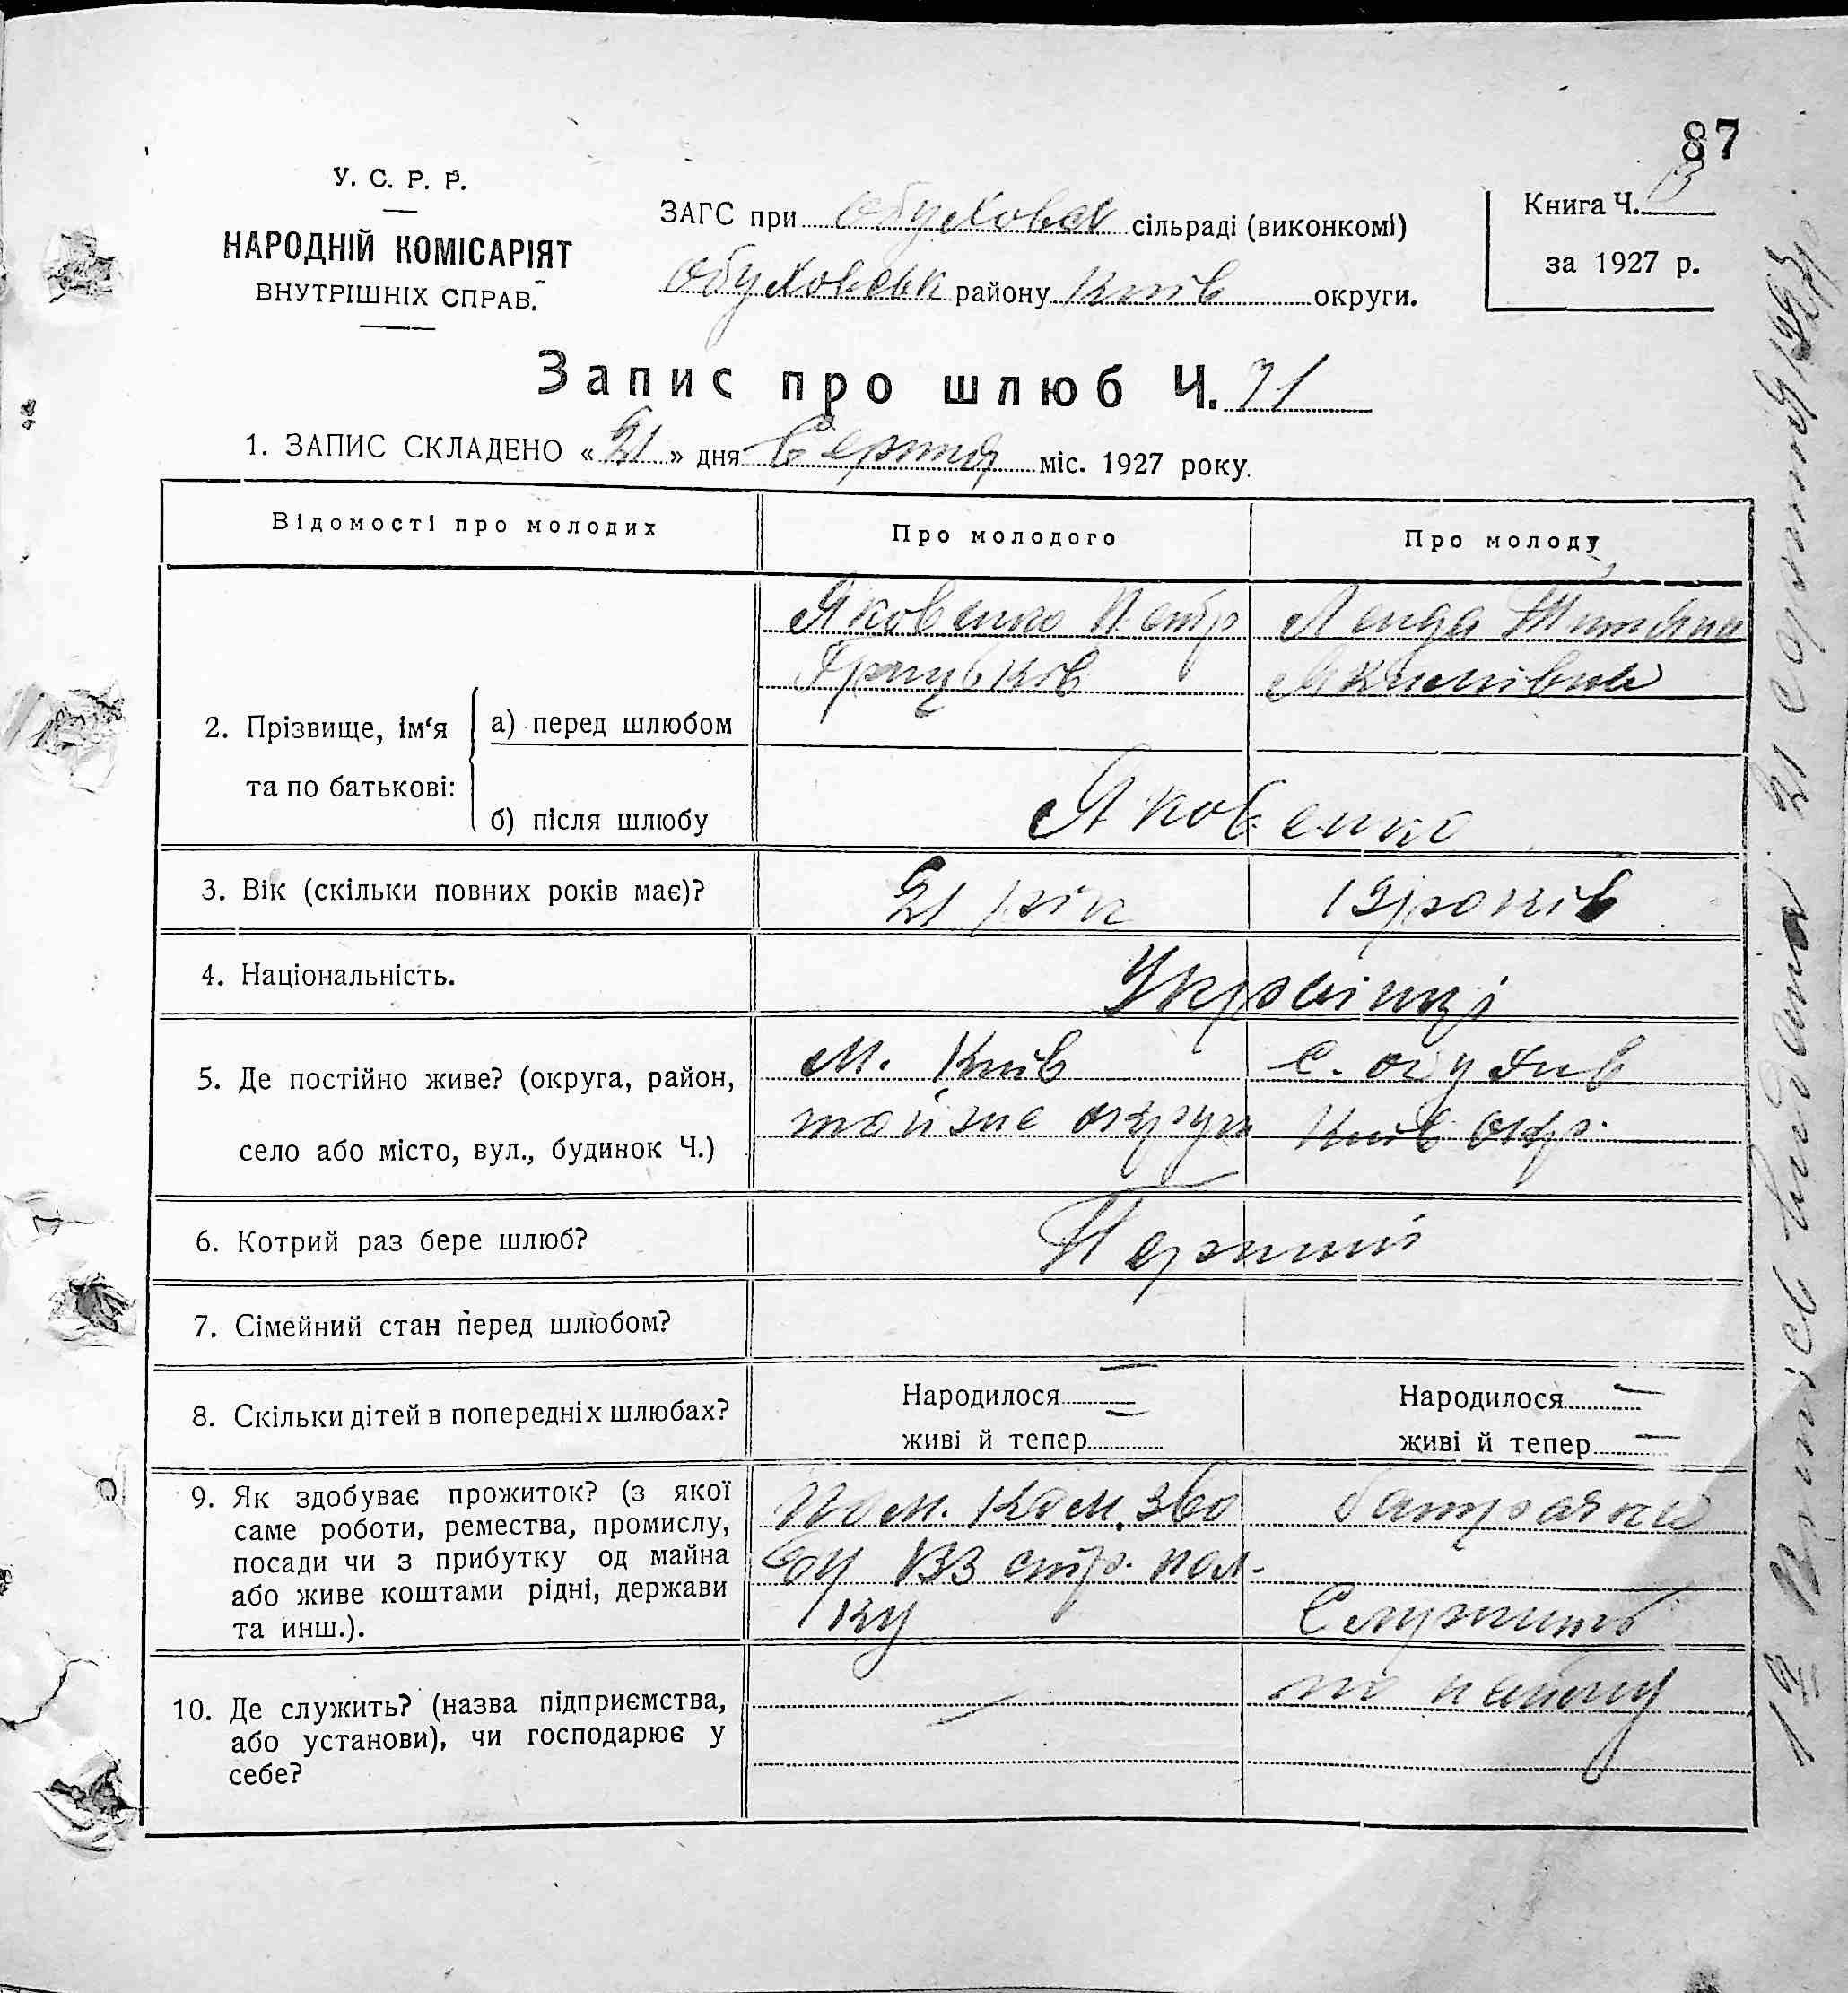 87
У. С. Р. Р.
НАРОДНІЙ КОМІСАРІЯТ
ВНУТРІШНІХ СПРАВ.
ЗАГС при Обуховск сільраді (виконкомі)
Обуховськ району Київ округи.
Книга Ч.
за 1927 р.
Запис про шлюб Ч. 71
1. ЗАПИС СКЛАДЕНО « 21 » дня Серпня міс. 1927 року.
Відомості про молодих
Про молодого
Про молоду
2. Прізвище, ім‘я та по батькові:
а) перед шлюбом
Яковенко Петр
Грицьков
Якимівна
б) після шлюбу
Яковенко
3. Вік (скільки повних років має)?
21 рік
19 років
4. Національність.
Українці
5. Де постійно живе? (округа, район,
село або місто, вул., будинок Ч.)
м. Київ
тойже округи
с. Обухів
Київ окр.
6. Котрий раз бере шлюб?
Перший
7. Сімейний стан перед шлюбом?
8. Скільки дітей в попередніх шлюбах?
Народилося —
живі й тепер —
Народилося —
живі й тепер —
9. Як здобуває прожиток? (з якої
саме роботи, ремества, промислу,
посади чи з прибутку од майна
або живе коштами рідні, держави
та инш.).
Пом. Ком. Взво
ду 133 стр. пол-
ку
батрачка
10. Де служить? (назва підприємства,
або установи), чи господарює у
себе?
—
Служить
по найму
21 серпня 1927 р.